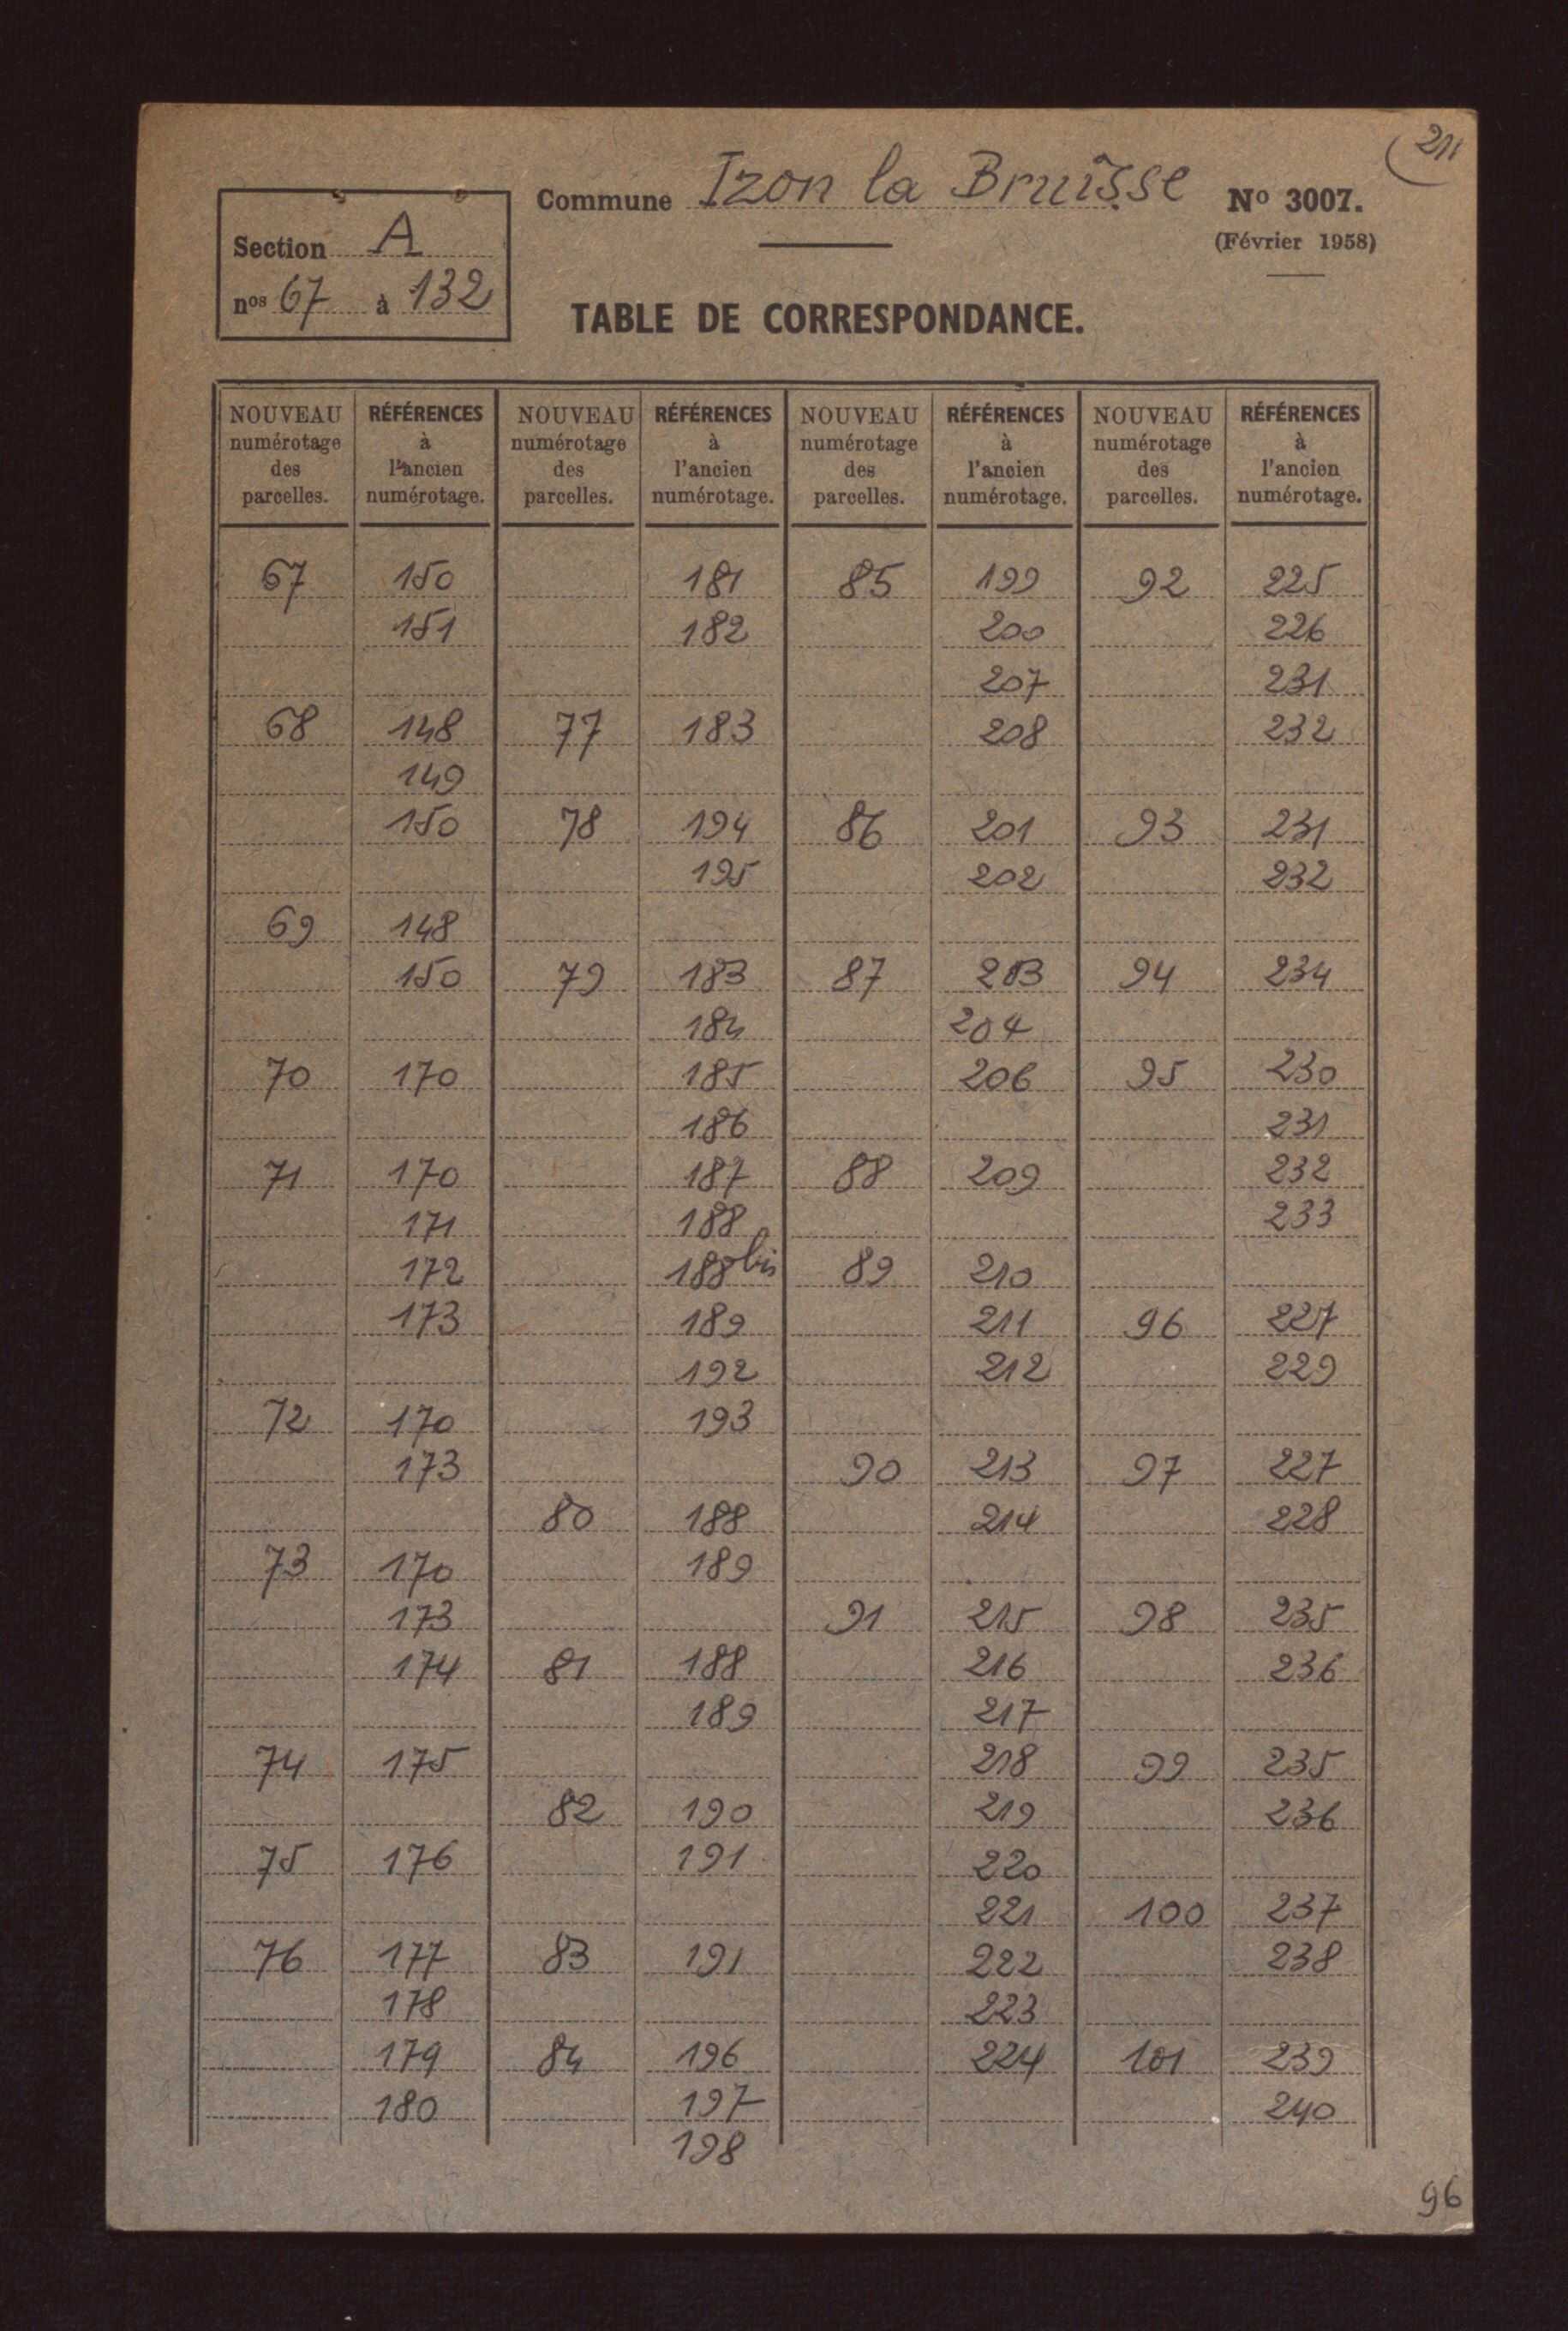 211
Commune Izon la Bruisse
N° 3007.
(Février 1958)
Section A
nos 67 à 132
TABLE DE CORRESPONDANCE.
NOUVEAU RÉFÉRENCES NOUVEAU RÉFÉRENCES NOUVEAU RÉFÉRENCES NOUVEAU RÉFÉRENCES
numérotage à numérotage à numérotage à numérotage à
des l'ancien des l'ancien des l'ancien des l'ancien
parcelles. numérotage. parcelles. numérotage. parcelles. numérotage. parcelles. numérotage.
67 150 181 85 199 92 225
151 182 200 226
207 231
68 148 77 183 208 232
149
150 78 194 86 201 93 231
195 202 232
69 148
150 79 183 87 203 94 234
184 204
70 170 185 206 95 230
186 231
71 170 187 88 209 232
171 188 233
172 188 bis 89 210
173 189 211 96 227
192 212 229
72 170 193
173 90 213 97 227
80 188 214 228
73 170 189
173 91 215 98 235
174 81 188 216 236
189 217
74 175 218 99 235
82 190 219 236
75 176 191 220
221 100 237
76 177 83 191 222 238
178 223
179 84 196 224 101 239
180 197 240
198
96